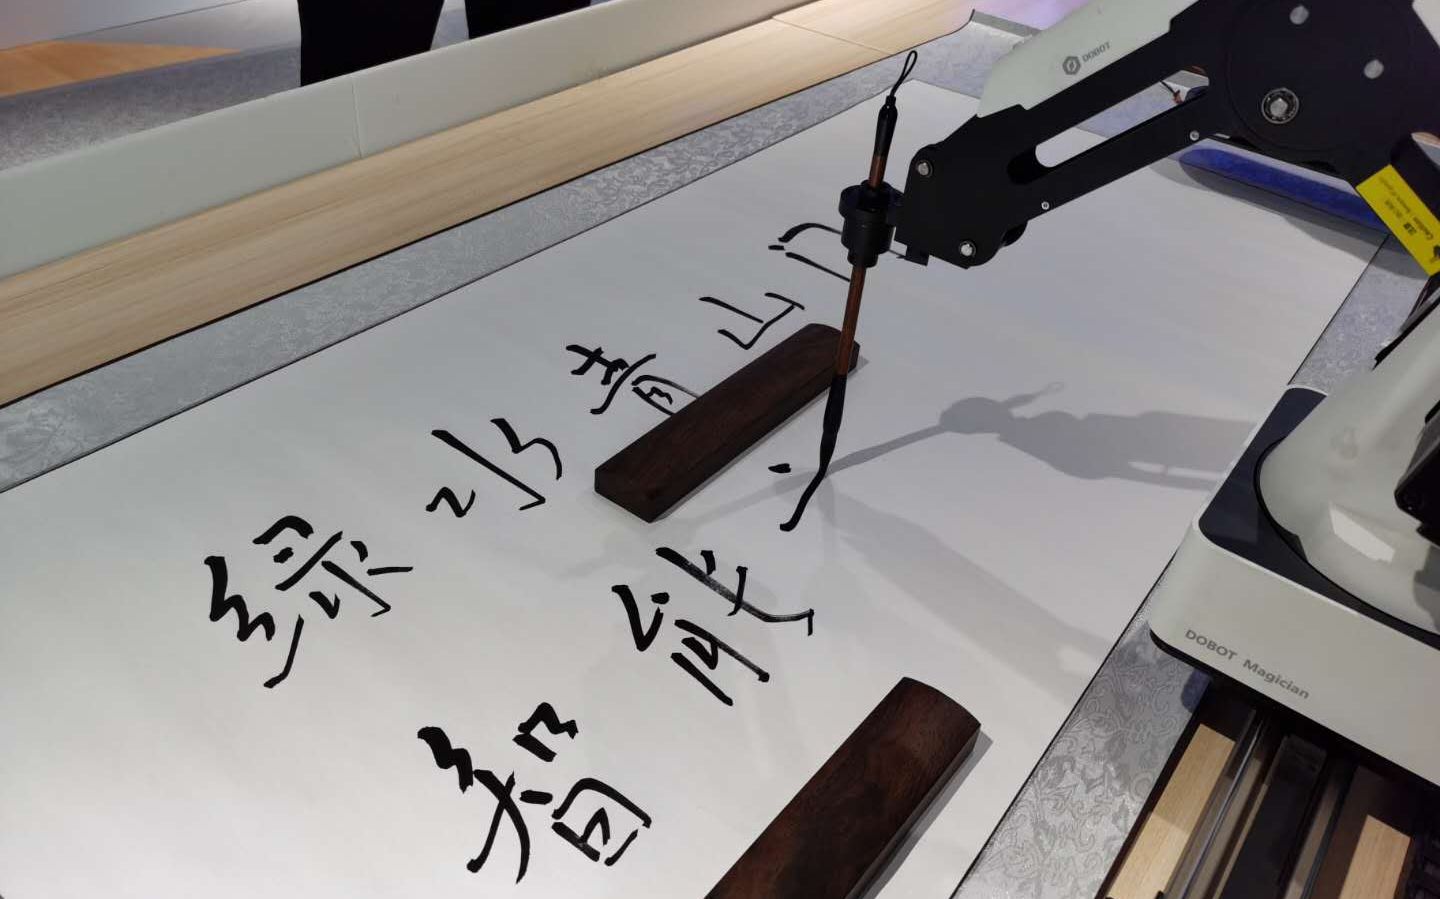 DOBOT
绿水青山
智能
DOBOT Magician